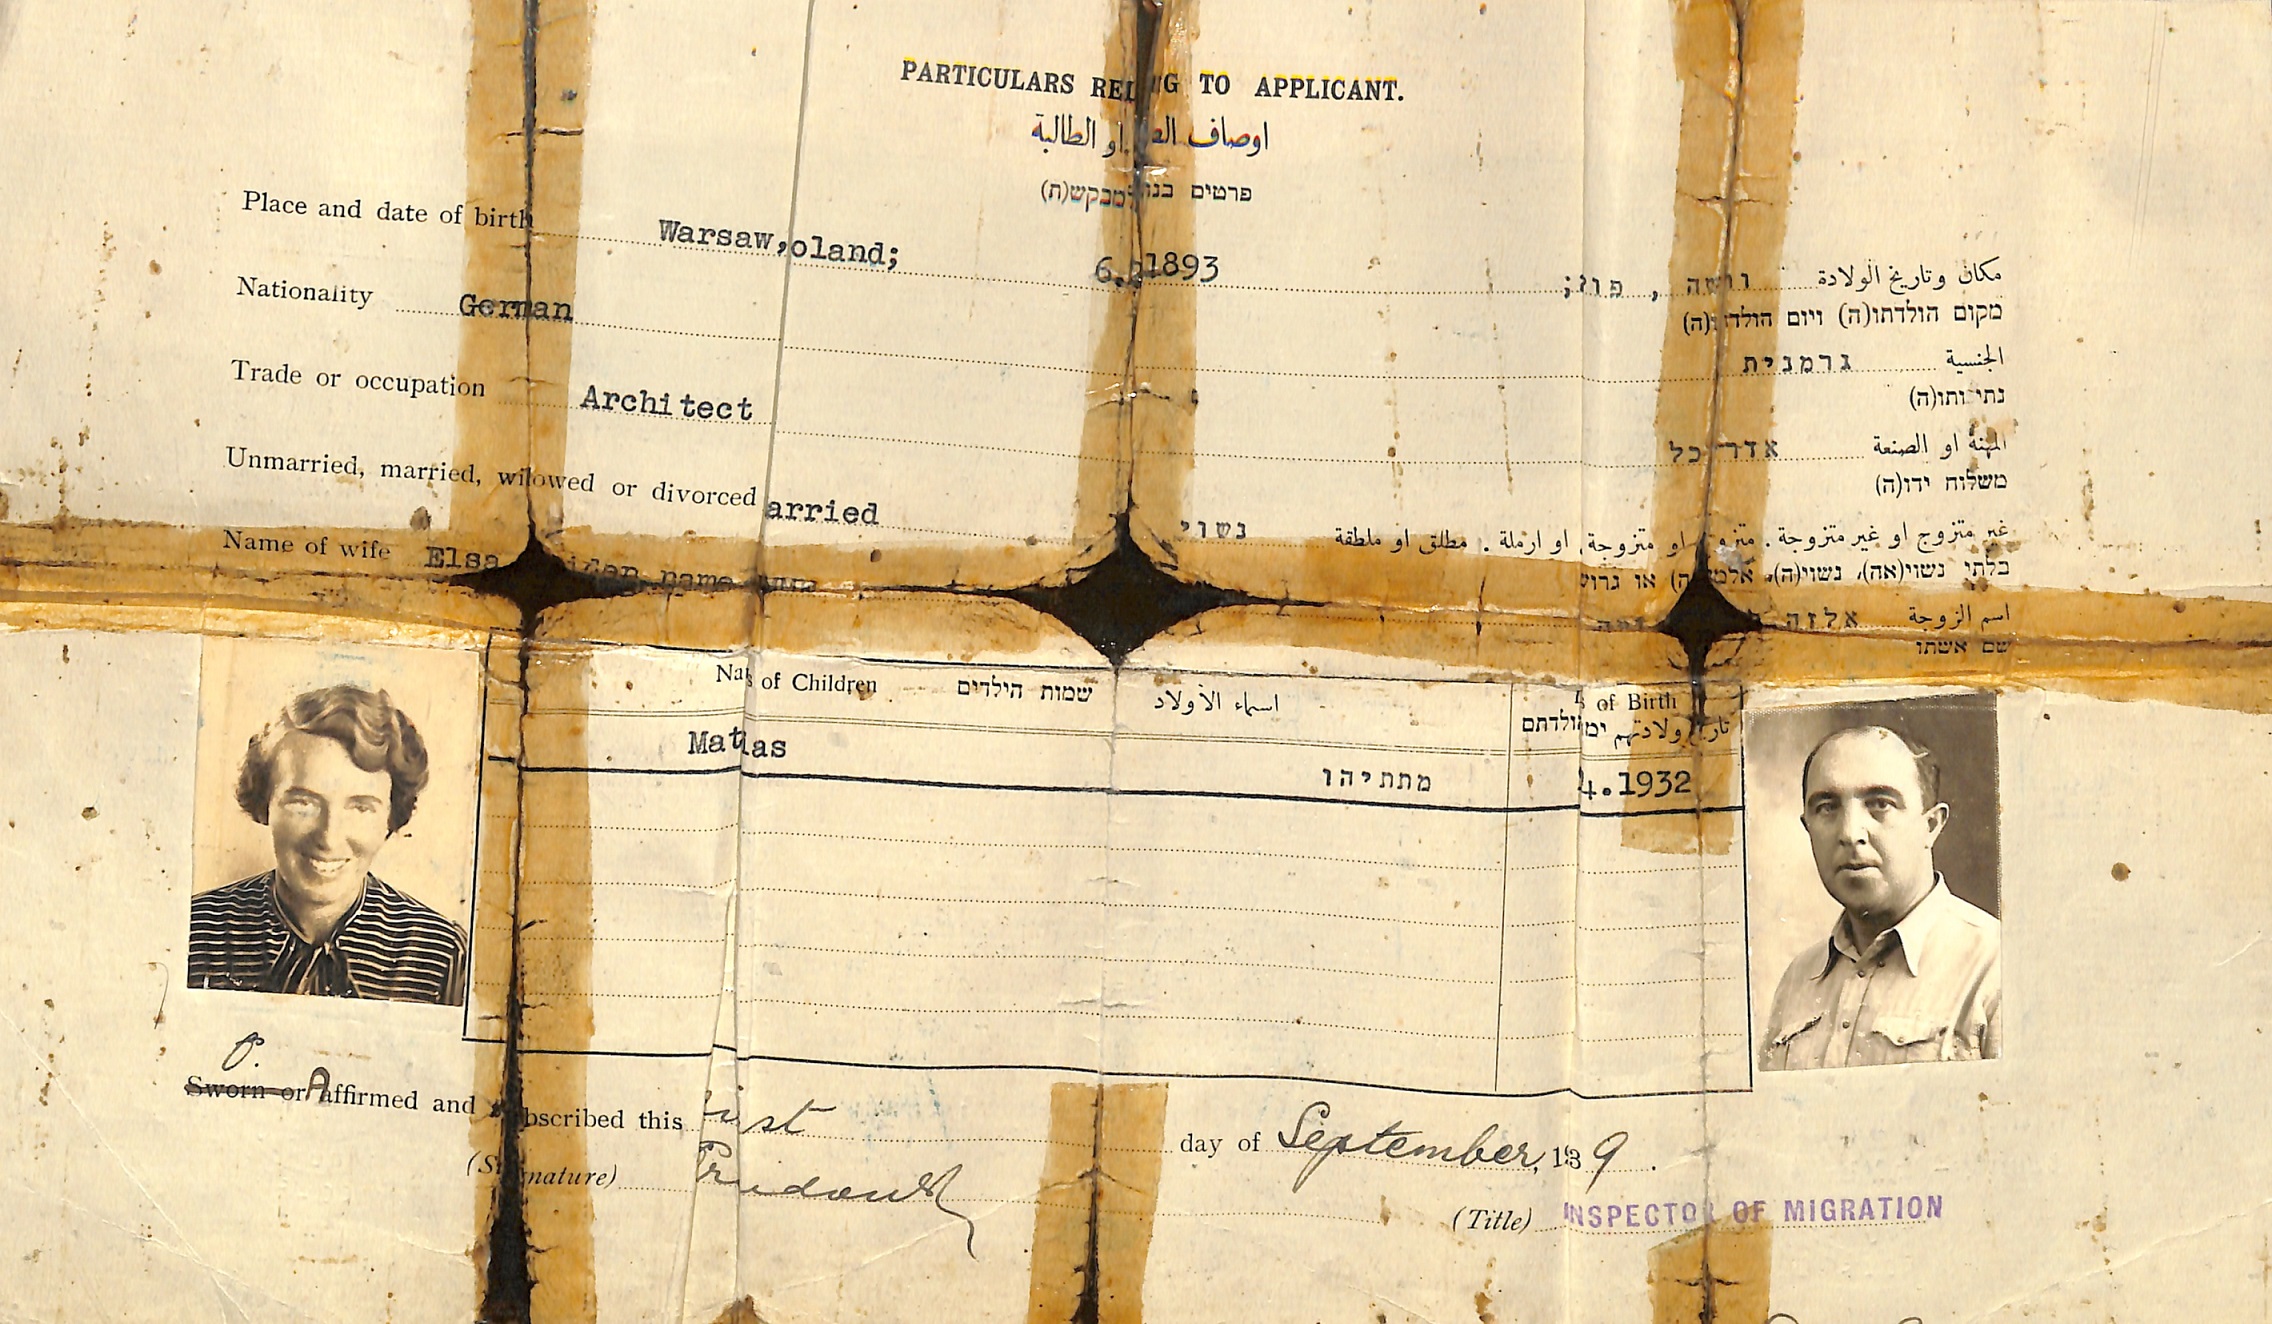 PARTICULARS REL NG TO APPLICANT.
اوصاف او الطالبة
פרטים למבקש(ת)
Place and date of birth Warsaw, oland; 6. 1893
مكان وتاريخ الولادة
מקום הולדתו(ה) ויום הולדתו(ה)
Nationality German
الجنسية גרמנית
נתינותו(ה)
Trade or occupation Architect
المهنة او الصنعة אדריכל
משלוח ידו(ה)
Unmarried, married, widowed or divorced arried
נשוי غير متزوج او غير متزوجة . متزوج او متزوجة, او ارملة . مطلق او مطلقة
בלתי נשוי(אה), נשוי(ה), או גרוש
Name of wife Elsa name
اسم الزوجة אלזה
שם אשתו
of Children שמות הילדים اسماء الأولاد of Birth
ولادتهم
Mat as מתתיהו 4.1932
Sworn or Affirmed and subscribed this st day of September, 139.
(Signature)
(Title) INSPECTOR OF MIGRATION